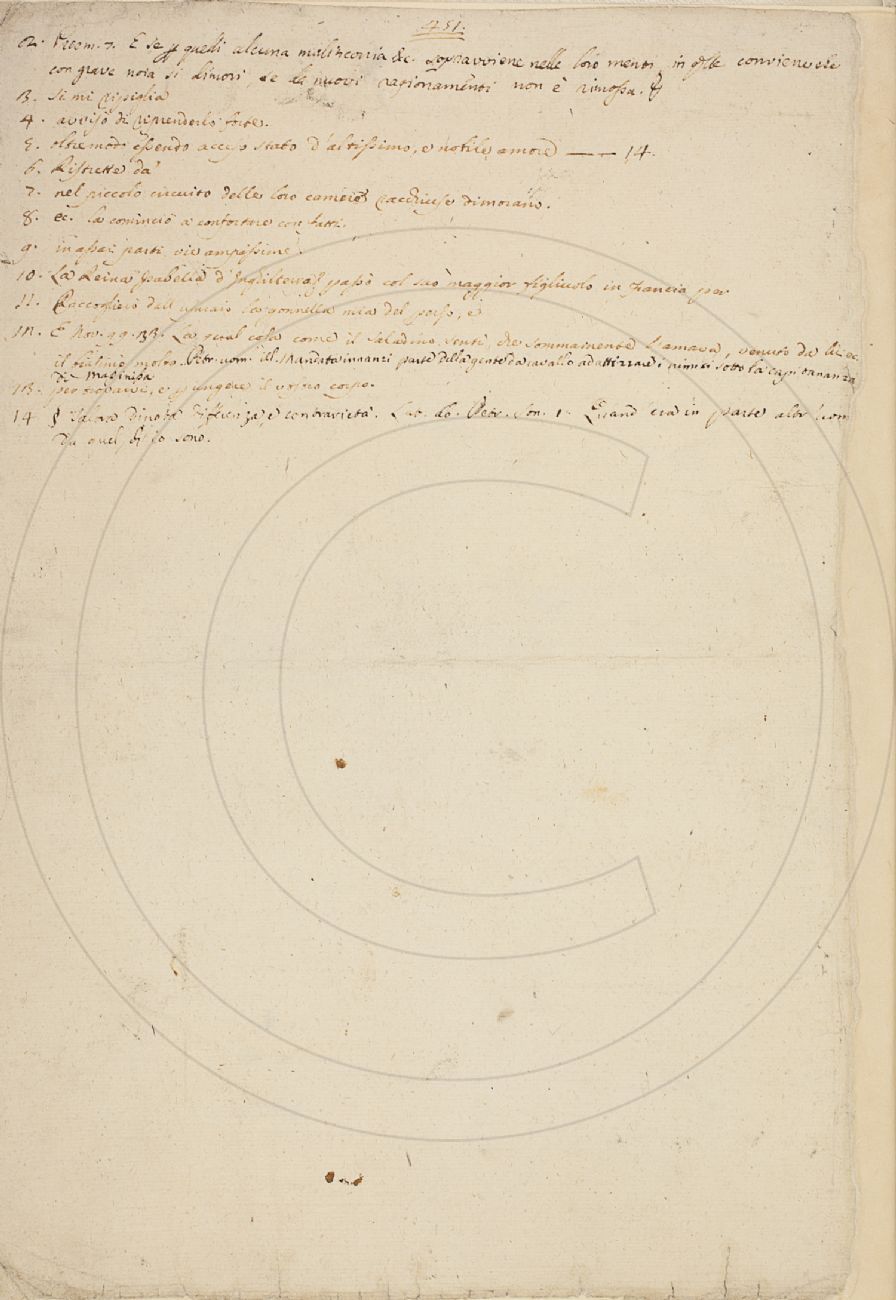 451.
2. Proem. 7. E se p quelli alcuna malinconia &c. sopravviene nelle loro menti, in esse conviene che
con grave noia si dimori, se da nuovi ragionamenti non è rimossa.
3. Si mi ripiglia
4. avvisò di riprenderlo forte.
5. oltremodo essendo acceso stato d'altissimo, e nobile amore — 14.
6. Ristrette da'
7. nel piccolo circuito delle loro camere racchiuse dimorano.
8. ec. la cominciò a confortare con fatti.
9. in assai parti vie ampissime.
10. La Reina Isabella d'Inghilterra passò col suo maggior figliuolo in Francia per
11. Raccoglierò dall' usuraio la gonnella mia del perso, e
12. E Nov. 99. 33. La qual cosa come il Saladino sentì, che sommamente l'amava, venuto da lui ec.
il molto. Petr. uom. ill. Mandata innanzi parte della gente da cavallo ad attizzare i nimici sotto la capitananza
di Masinissa
13. e pungere il vostro corpo.
14 § Talora dinota differenza, e contrarietà. Lat. ab. Petr. Son. 1. Quand' era in parte altr' uom
da quel, ch' io sono.